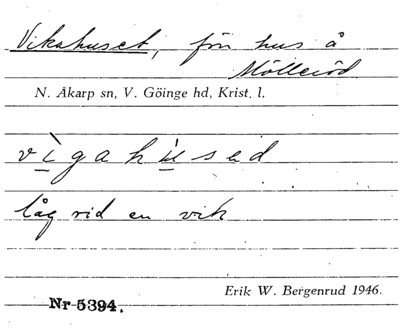 Vikahuset, förr hus å
Mölleröd
N. Åkarp sn, V. Göinge hd, Krist. l.
vìgahùsəd
låg vid en vik
Erik W. Bergenrud 1946.
Nr 5394.